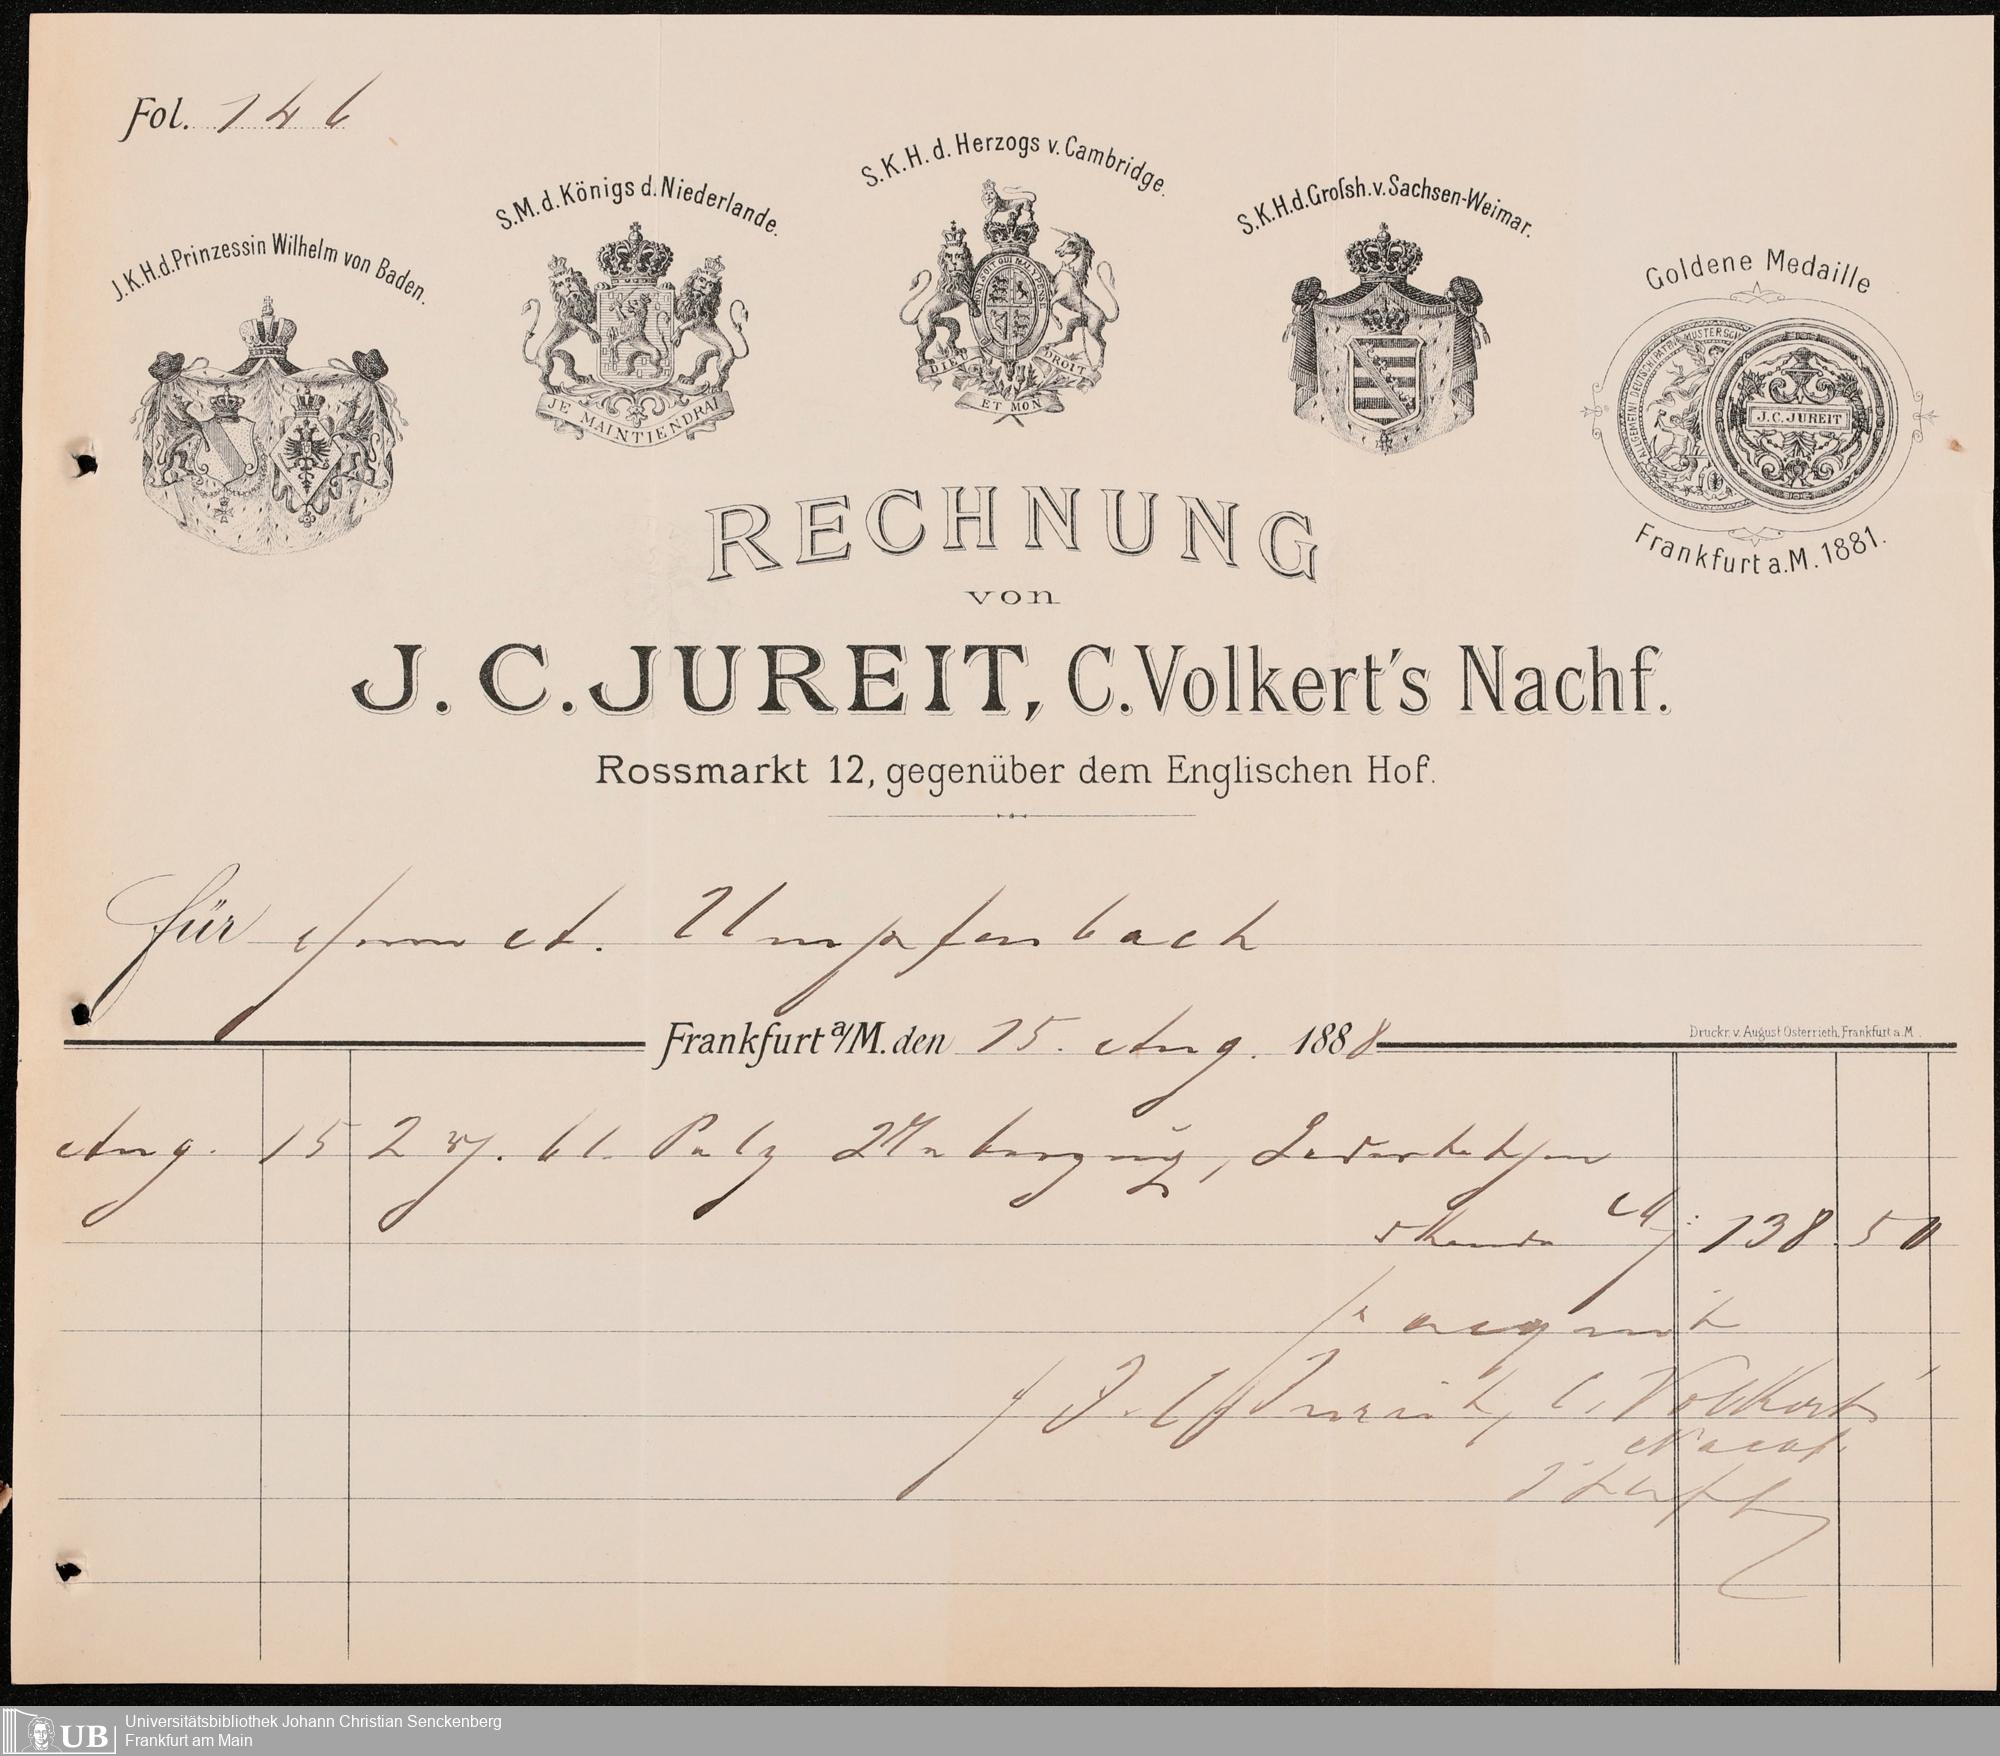 Fol. 146
J.K.H.d.Prinzessin Wilhelm von Baden.
S.M.d.Königs d.Niederlande.
JE MAINTIENDRAI
S.K.H.d. Herzogs v. Cambridge.
HONI SOIT QUI MAL Y PENSE
DIEU ET MON DROIT
S.K.H.d.Groſsh.v.Sachsen-Weimar.
Goldene Medaille
ALLGEMEINE DEUTSCHE PATENT MUSTERSCH
J.C.JUREIT
Frankfurt a.M. 1881.
RECHNUNG
von
J. C. JUREIT, C.Volkert's Nachf.
Rossmarkt 12, gegenüber dem Englischen Hof.
für Herrn A. Umpfenbach
Frankfurt a/M. den 15. Aug. 1888
Druckr. v. August Osterrieth, Frankfurt a.M.
Aug. 15 2
M: 138.50
J. C. Jureit, C. Volkert's
Nachf.